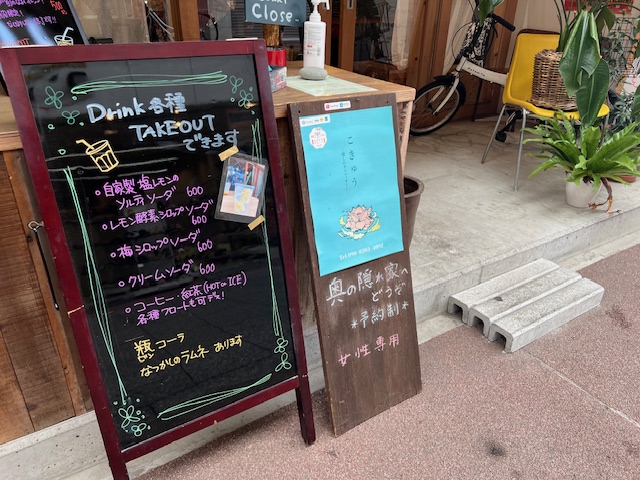 Close
Drink各種
TAKEOUT
できます
・自家製 塩レモンの
ソルティソーダ 600
・レモン酵素シロップソーダ
600
・梅シロップソーダ
600
・クリームソーダ 600
・コーヒー・紅茶(HOT or ICE)
各種フロートも可デス!
瓶コーラ
ビン
なつかしのラムネ あります
こきゅう
奥の隠れ家へ
どうぞ
*予約制*
女性専用